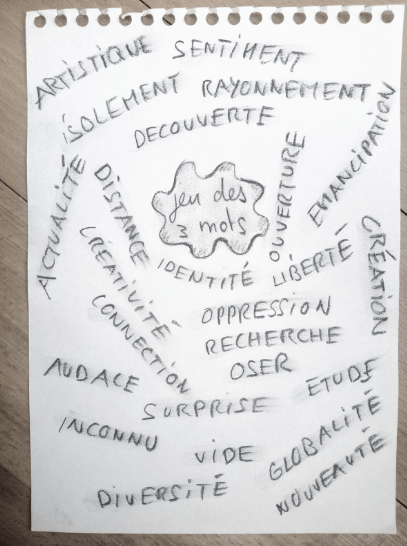 ARTISTIQUE
SENTIMENT
ISOLEMENT
RAYONNEMENT
DECOUVERTE
EMANCIPATION
ACTUALITÉ
DISTANCE
jeu des
3 mots
OUVERTURE
CRÉATIVITÉ
IDENTITÉ
LIBERTÉ
CRÉATION
CONNECTION
OPPRESSION
RECHERCHE
OSER
AUDACE
ETUDE
SURPRISE
INCONNU
VIDE
GLOBALITÉ
NOUVEAUTÉ
DIVERSITÉ